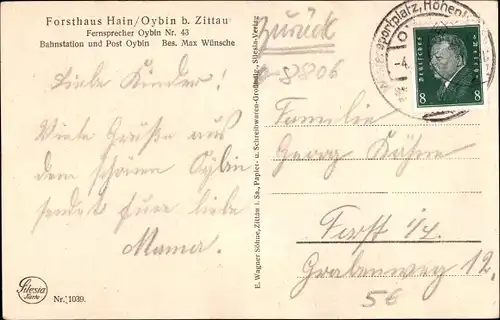 Forsthaus Hain/Oybin b. Zittau
Fernsprecher Oybin Nr. 43
Bahnstation und Post Oybin Bes. Max Wünsche
Liebe Kinder!
Viele Grüße aus
dem schönen Oybin
sendet Eure liebe
Mama.
Silesia
Karte
Nr. 1039.
E. Wagner Söhne, Zittau i. Sa., Papier- u. Schreibwaren-Großhdlg. Silesia-Verlag
Zurück
8806
Wintersportplatz, Höhenl
DEUTSCHES REICH
8 8
Familie
Georg Kähne
Forst i/L.
Grabenweg 12,
5€